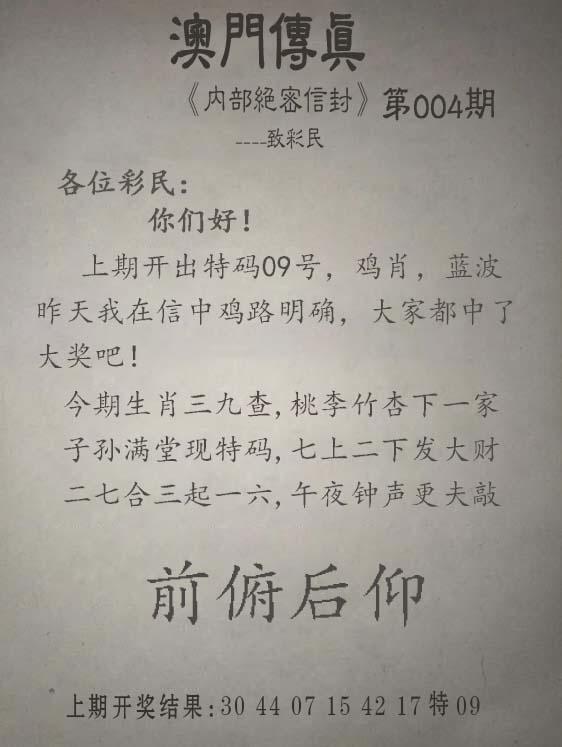 澳門傳真
《内部絕密信封》第004期
----致彩民
各位彩民:
你们好!
上期开出特码09号，鸡肖，蓝波
昨天我在信中鸡路明确，大家都中了
大奖吧!
今期生肖三九查,桃李竹杏下一家
子孙满堂现特码,七上二下发大财
二七合三起一六,午夜钟声更夫敲
前俯后仰
上期开奖结果:30 44 07 15 42 17 特 09